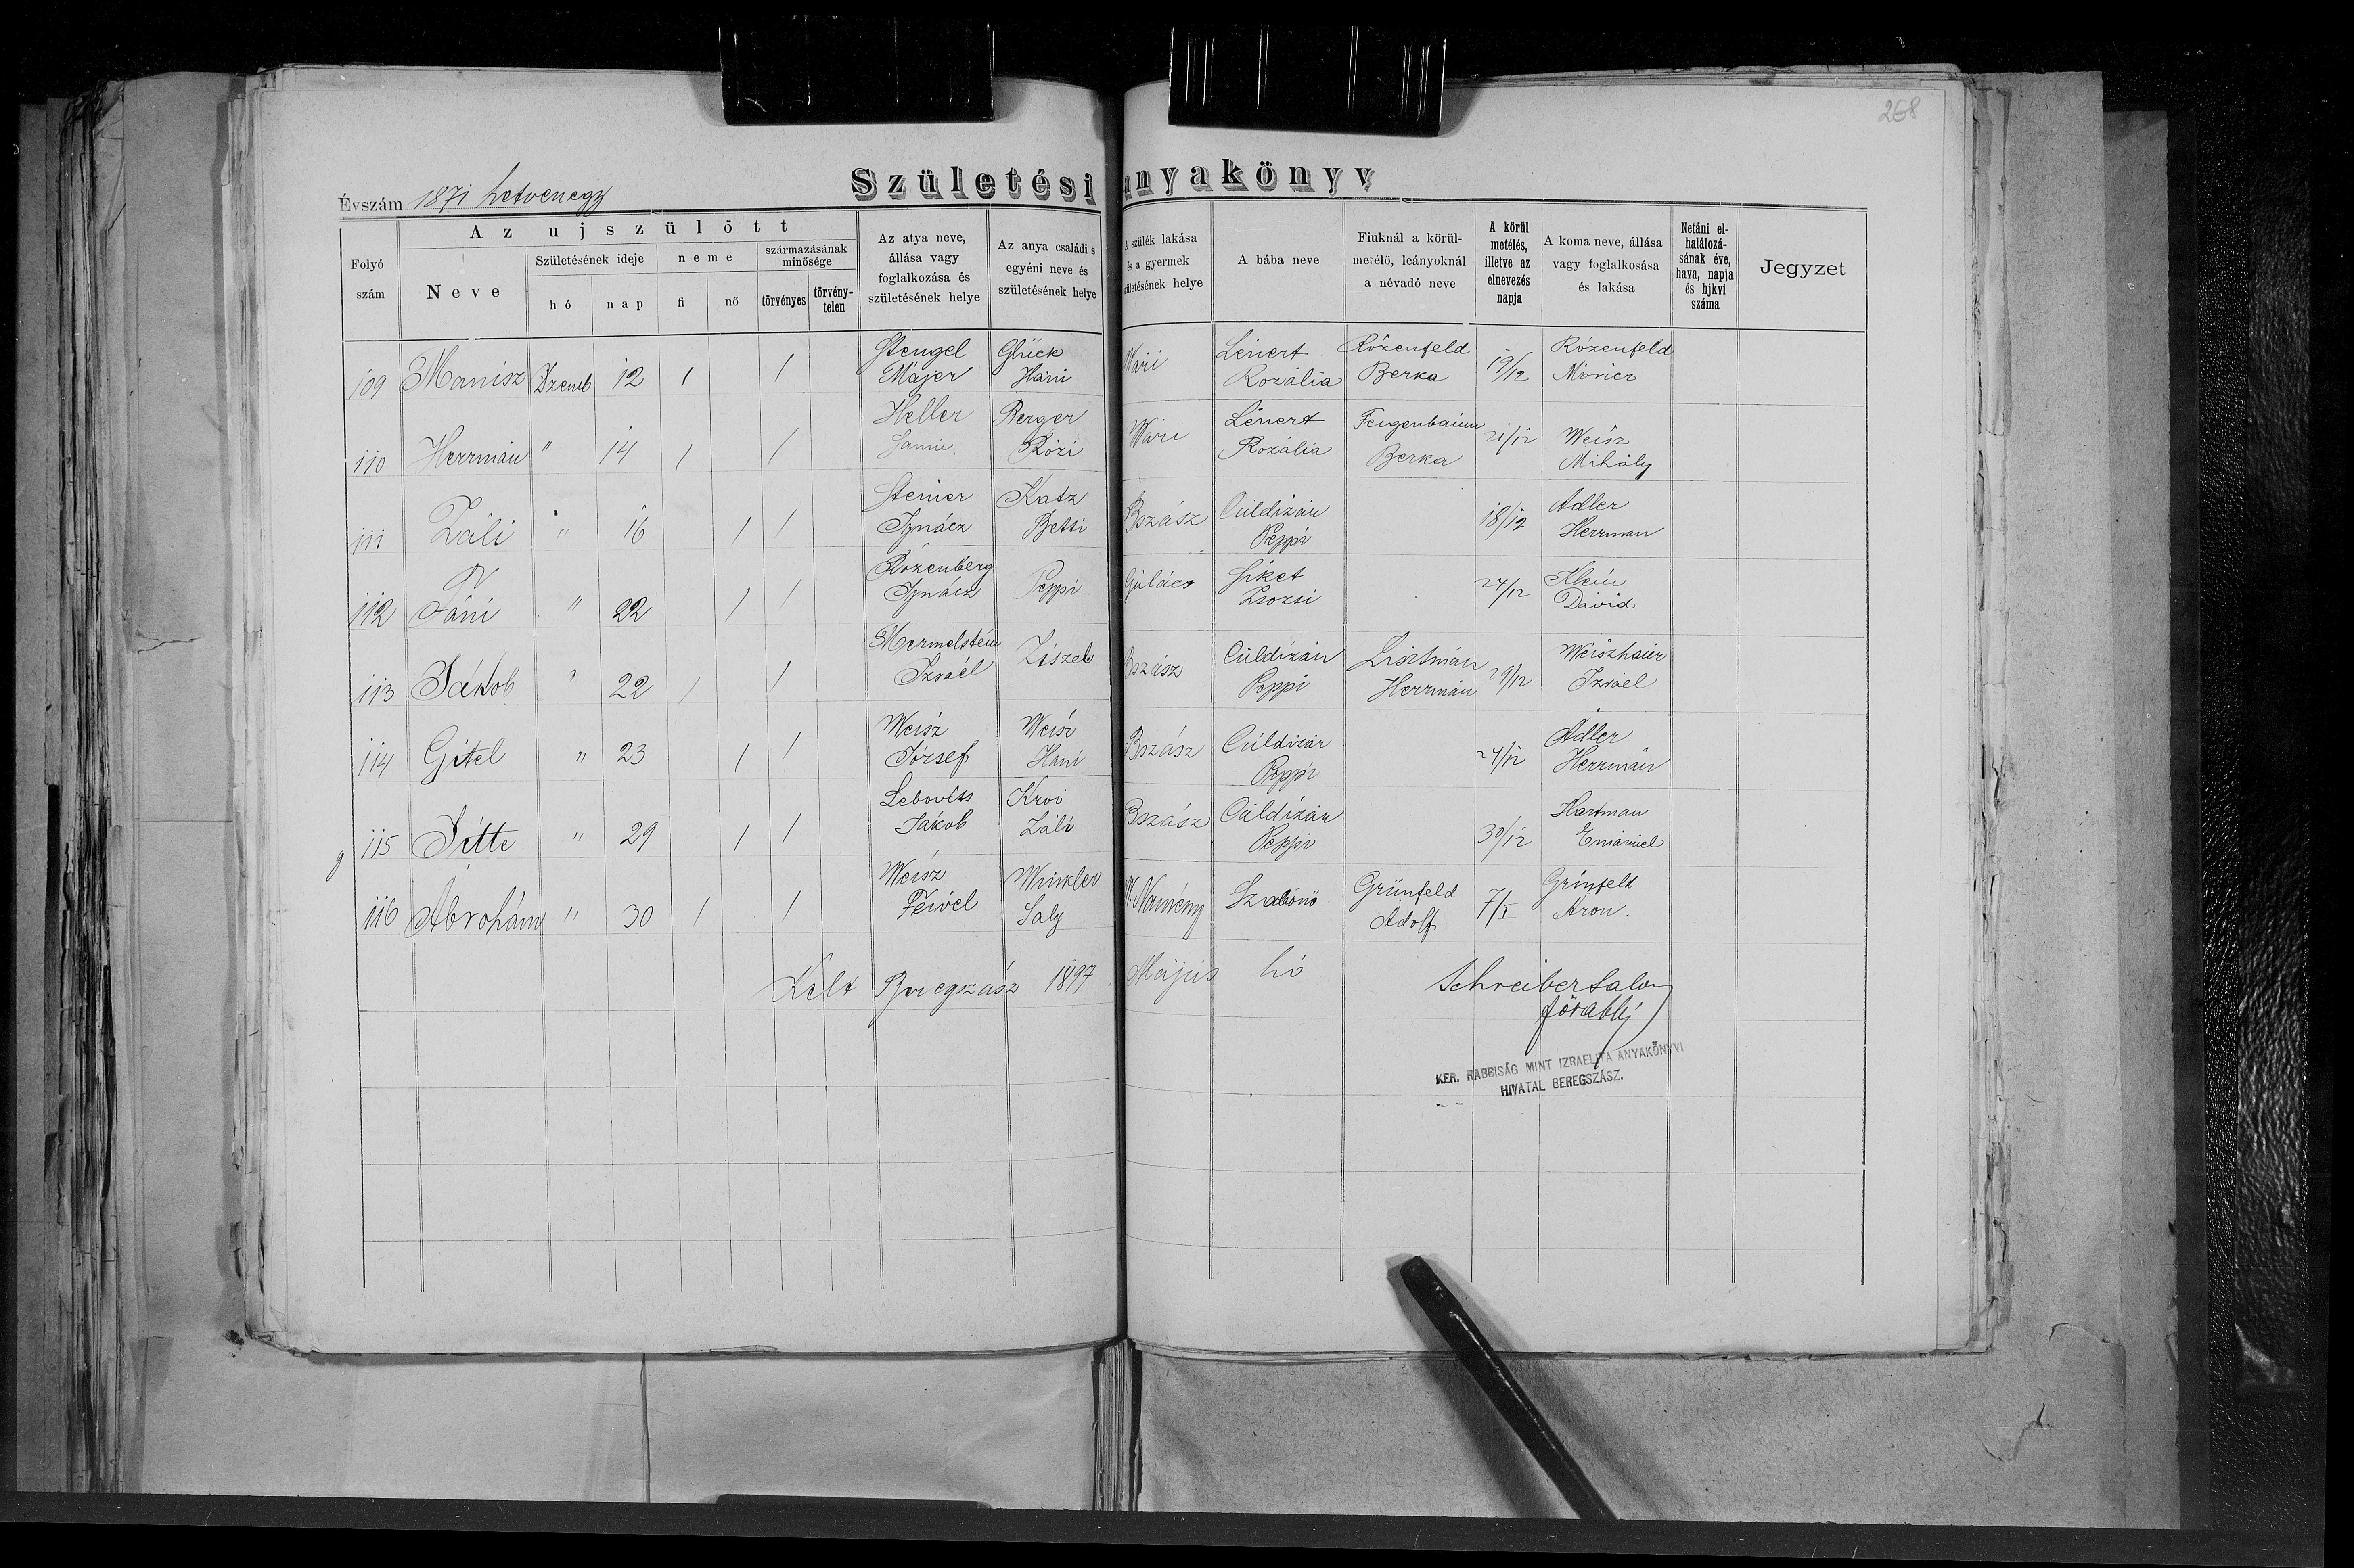 268
Születési anyakönyv
Évszám 1871 hetvenegy
Folyó szám
Az ujszülött
Neve
Születésének ideje
hó
nap
neme
fi
nő
származásának minősége
törvényes
törvény-telen
Az atya neve, állása vagy foglalkozása és születésének helye
Az anya családi s egyéni neve és születésének helye
A szülék lakása és a gyermek születésének helye
A bába neve
Fiuknál a körül-metélő, leányoknál a névadó neve
A körül metélés, illetve az elnevezés napja
A koma neve, állása vagy foglalkosása és lakása
Netáni el-halálozá-sának éve, hava, napja és hjkvi száma
Jegyzet
109 Manisz Dzemb 12 1 1 Stengel Májer Glück Háni Wári Lénert Rozália Rózenfeld Berka 19/12 Rózenfeld Móricz
110 Herrmán " 14 1 1 Heller Sami Berger Rózi Wári Lénert Rozália Feigenbaum Berka 21/12 Weisz Mihály
111 Záli " 16 1 1 Steiner Ignácz Katz Betti Bszász Cüldizán Peppi 18/12 Adler Herrman
112 Fáni " 22 1 1 Rózenberg Ignácz Peppi Gulács Siket Zsozsi 24/12 Klein Dávid
113 Jákob " 22 1 1 Mermelstein Izraél Zíszel Bszász Cüldizán Peppi Lisztmán Herrmán 29/12 Weiszhaus Izráel
114 Gitel " 23 1 1 Weisz József Weisz Háni Bszász Cüldizár Peppi 24/12 Adler Herrmán
g 115 Jitte " 29 1 1 Lebovits Jakob Kroi Záli Bszász Cüldizár Peppi 30/12 Hartman Emánuel
116 Abrohám " 30 1 1 Weisz Feivel Winkler Saly V. Namény Szabónö Grünfeld Adolf 7/I Grinfelt Áron.
Kelt Beregszász 1897 Május hó
Schreiber Salon
főrabbi
KER. RABBISÁG MINT IZRAELITA ANYAKÖNYVI
HIVATAL BEREGSZÁSZ.